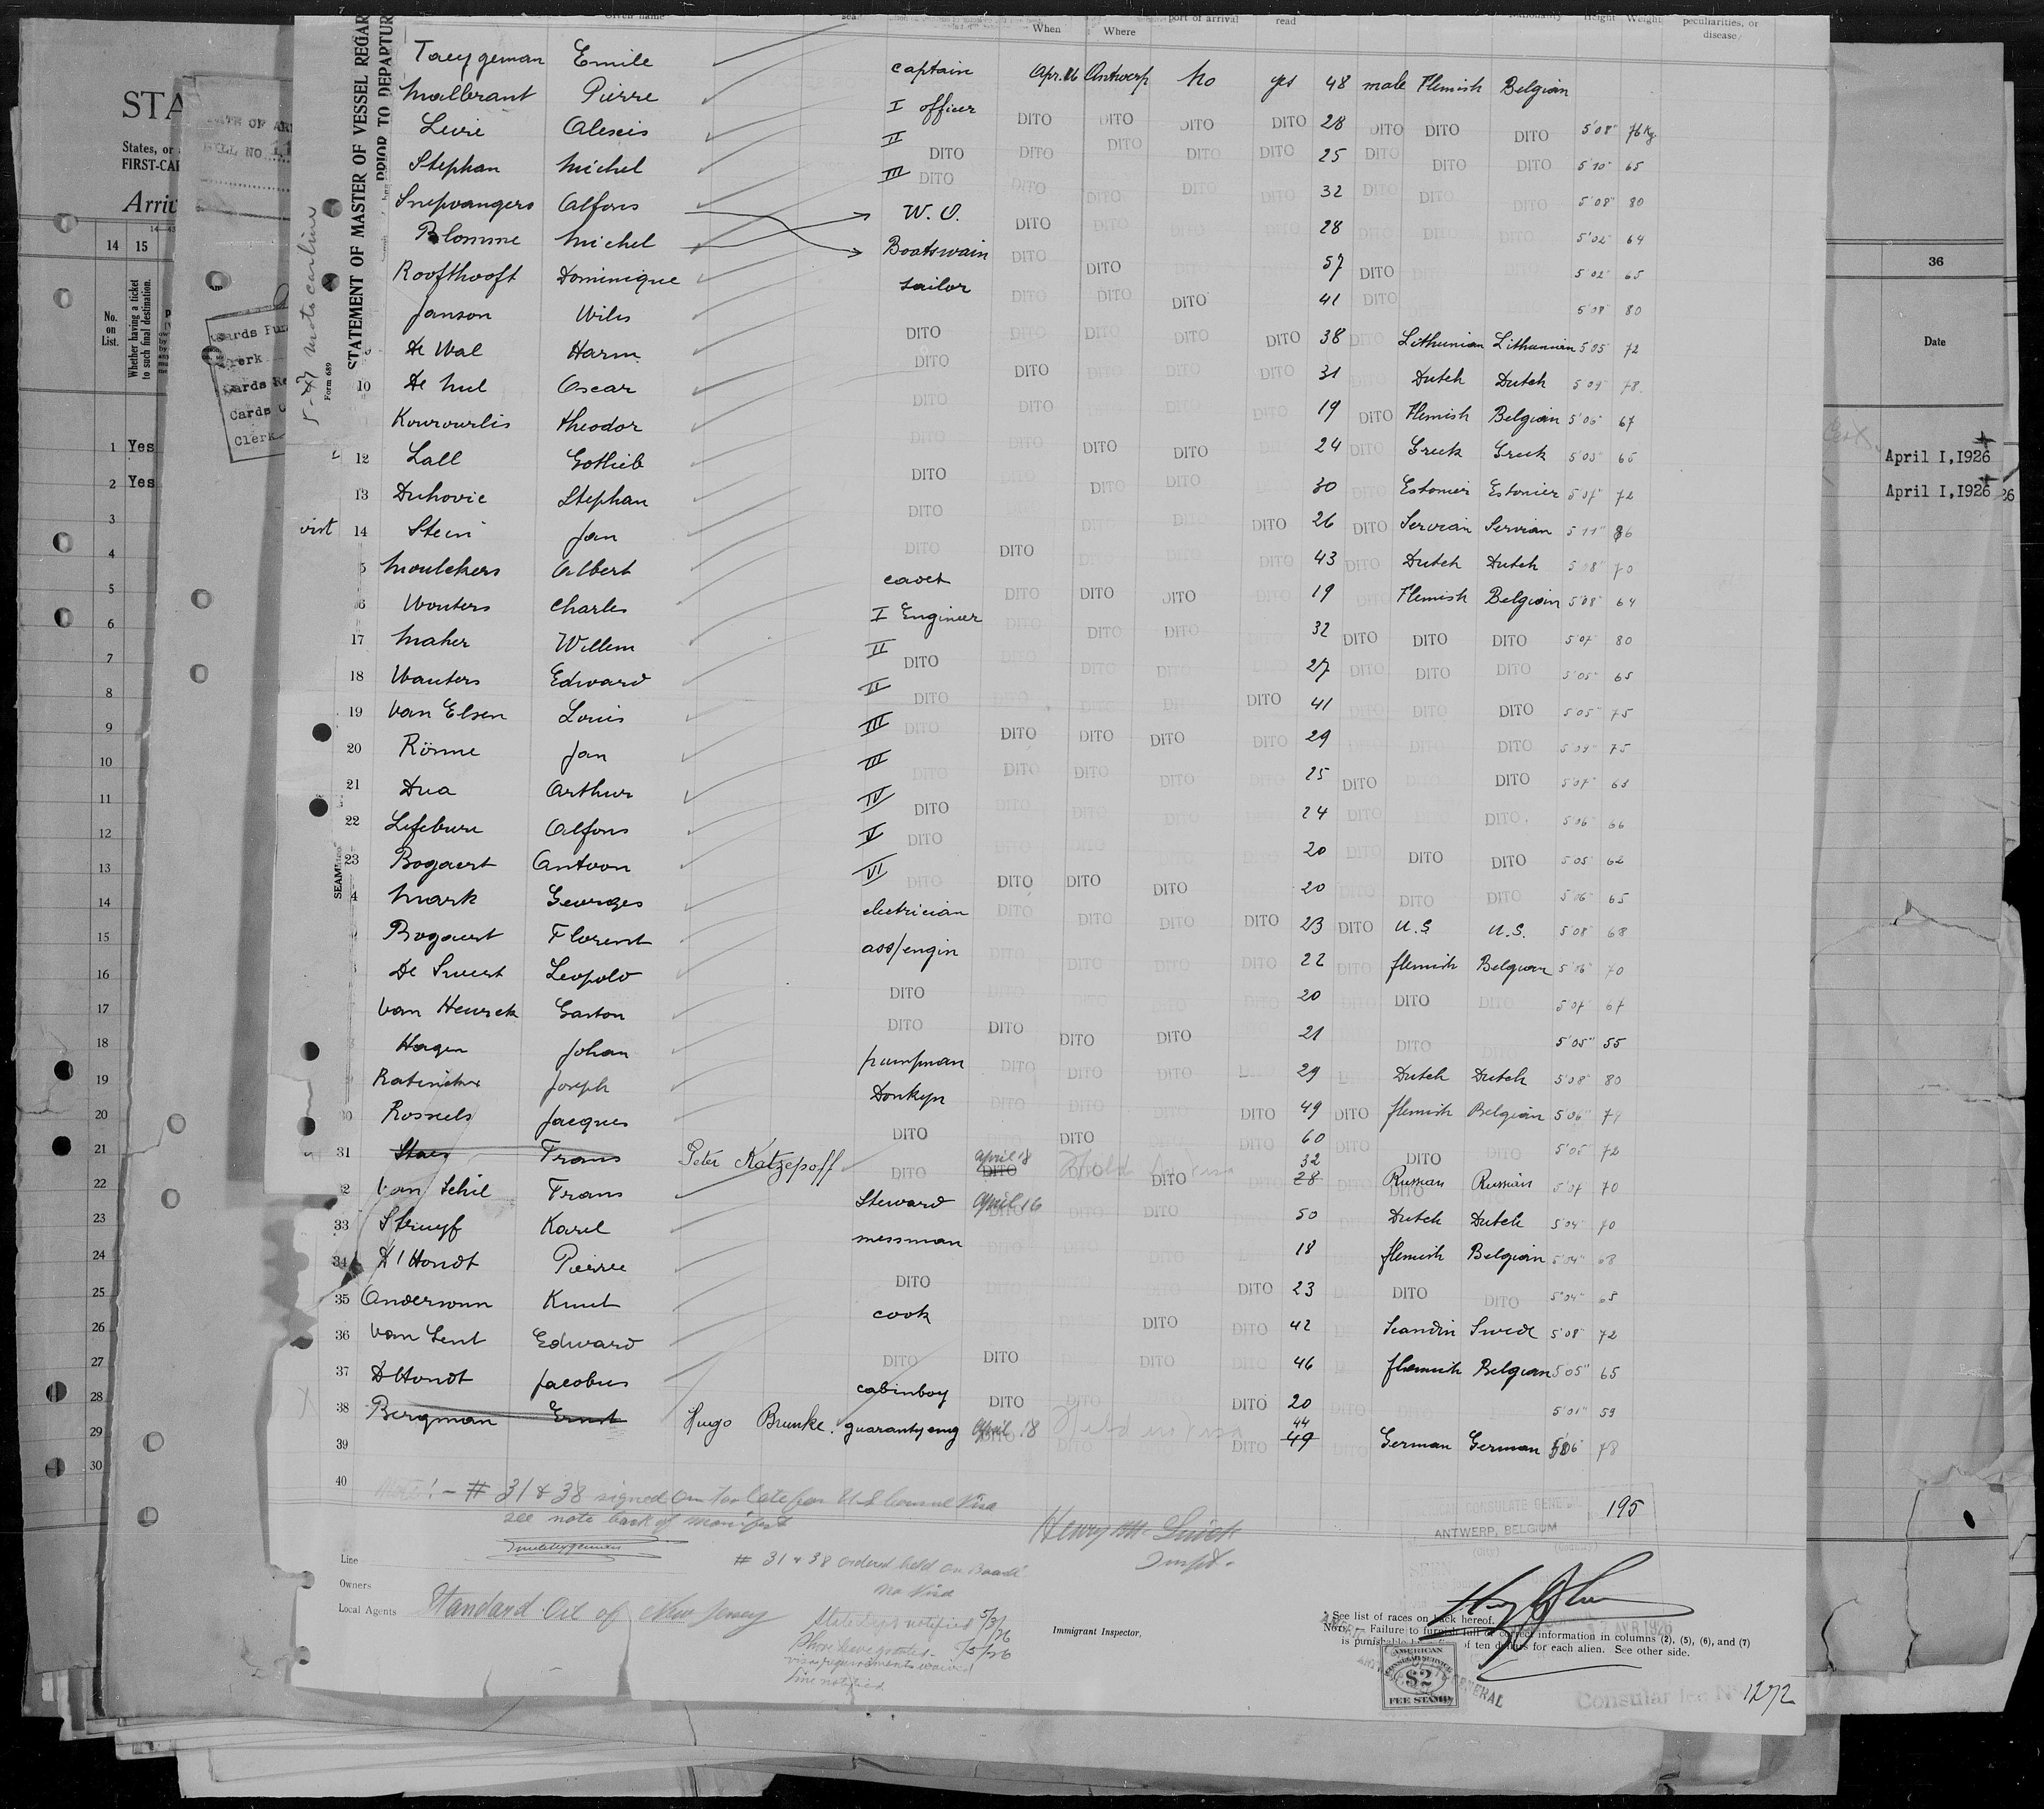 STATEMENT OF MASTER OF VESSEL REGAR
PRIOR TO DEPARTUR
Form 689
Given name When Where port of arrival read Nationality Height Weight peculiarities, or disease
Taeygeman Emile captain Apr. 16 Antwerp No yes 48 male Flemish Belgian
Malbrant Pierre I officer DITO DITO DITO DITO 28 DITO DITO DITO 5'08" 76 Kg
Alexis II DITO DITO DITO DITO DITO 25 DITO DITO DITO 5'10" 65
Stephan Michel III DITO DITO DITO DITO DITO 32 DITO DITO DITO 5'08" 80
Snepvangers Alfons W.O. DITO DITO DITO DITO 28 DITO DITO DITO 5'02" 64
Blomme Michel Boatswain DITO DITO 57 DITO 5'02" 65
Roofthooft Dominique sailor DITO DITO DITO 41 DITO 5'08" 80
Janson Wilis DITO DITO DITO DITO DITO 38 DITO Lithunian Lithunian 5'05" 72
De Wal Harm DITO DITO DITO DITO DITO 31 Dutch Dutch 5'09" 78
10 De Mul Oscar DITO DITO DITO 19 DITO Flemish Belgian 5'06" 67
Kourourlis Theodor DITO DITO DITO DITO 24 DITO Greek Greek 5'05" 65
12 Lall Gotlieb DITO DITO DITO 30 DITO Estonier Estonier 5'07" 72
13 Duhovic Stephan DITO DITO 26 DITO Servian Servian 5'11" 86
14 Stein Jan DITO DITO DITO 43 DITO Dutch Dutch 5'08" 70
5 Moulckers Albert cadet DITO DITO DITO 19 Flemish Belgian 5'08" 64
6 Wouters Charles I Engineer DITO DITO DITO 32 DITO DITO DITO 5'07" 80
17 Maher Willem II DITO DITO DITO 27 DITO DITO DITO 5'05" 65
18 Wauters Edward II DITO DITO DITO DITO 41 DITO DITO DITO 5'05" 75
19 Van Elsen Louis III DITO DITO DITO DITO DITO 29 DITO DITO 5'09" 75
20 Rönne Jan III DITO DITO DITO DITO 25 DITO DITO 5'07" 63
21 Dua Arthur IV DITO 24 DITO DITO 5'06" 66
22 Lefebure Alfons V DITO 20 DITO DITO DITO 5'05" 62
23 Bogaert Antoon VI DITO DITO DITO DITO 20 DITO DITO DITO 5'06" 65
4 Mark Georges electrician DITO DITO DITO DITO 23 DITO U.S U.S. 5'08" 68
Bogaert Florent ass/engin DITO DITO DITO DITO 22 DITO flemish Belgian 5'06" 70
De Swert Leopold DITO 20 DITO DITO 5'07" 67
Van Heurck Gaston DITO DITO DITO DITO 21 DITO 5'05" 55
Hagen Johan pumpman DITO DITO DITO 29 Dutch Dutch 5'08" 80
Joseph Donkyn DITO DITO DITO 49 DITO flemish Belgian 5'06" 74
30 Rossels Jacques DITO DITO DITO 60 DITO DITO DITO 5'05" 72
31 Staes Frans Peter Katzepoff DITO april 18 DITO DITO DITO 32 28 Russian Russian 5'07" 70
32 Van Schil Frans Steward april 16 DITO DITO 50 Dutch Dutch 5'04" 70
33 Struyf Karel messman 18 flemish Belgian 5'04" 68
34 D'Hondt Pierre DITO DITO 23 DITO DITO 5'04" 68
35 Andersonn Knut cook DITO DITO 42 Scandin Swede 5'08" 72
36 Van Lent Edward DITO DITO DITO DITO 46 flemish Belgian 5'05" 65
37 D'Hondt Jacobus cabinboy DITO DITO DITO 20 5'01" 59
38 Bergman Ernst Hugo Brunke. guaranty eng April 18 DITO DITO 44 49 German German 5'06" 78
39
40
Note! - # 31 & 38 signed on too late for U.S Consul Visa
see note back of manifest
# 31 & 38 ordered held on board
no Visa
Henry M.
Inspt.
195
ANTWERP, BELGIUM
Line
Owners
Local Agents Standard Oil of New Jersey
State Dept notified 5/3/26
Shore leave granted 5/5/26
visa requirements waived
line notified
Immigrant Inspector,
* See list of races on back hereof.
NOTE.—Failure to furnish full or correct information in columns (2), (5), (6), and (7)
is punishable by a fine of ten dollars for each alien. See other side.
AMERICAN
CONSULAR SERVICE
$2
FEE STAMP
Consular fee No 1272
STA
States, or
FIRST-CA
14 15
No. on List.
Whether having a ticket to such final destination.
1 Yes
2 Yes
3
4
5
6
7
8
9
10
11
12
13
14
15
16
17
18
19
20
21
22
23
24
25
26
27
28
29
30
Clerk
36
Date
April 1, 1926
April 1, 1926